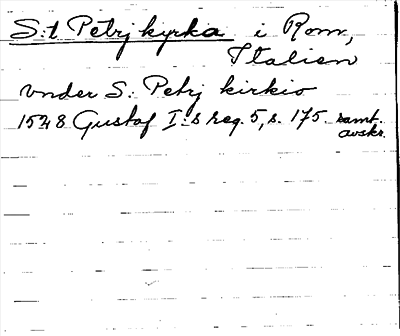 S:t Petrj kyrka i Rom,
Italien
vnder S: Petrj kirkio
1528 Gustaf I:s reg. 5, s. 175. samt.
avskr.